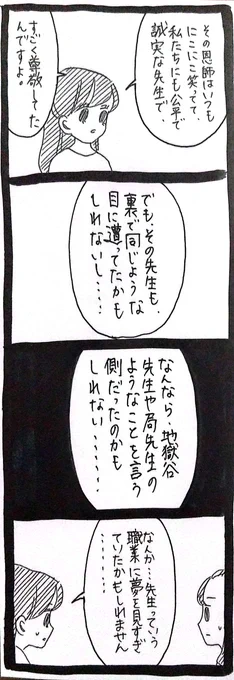 その恩師はいつも
にこにこ笑ってて、
私たちにも公平で
誠実な先生で、
すごく尊敬してた
んですよ。
でも、その先生も、
裏で同じような
目に遭ってたかも
しれないし‥‥
なんなら、地獄谷
先生や局先生の
ようなことを言う
側だったのかも
しれない‥‥‥
なんか…先生っていう
職業に夢を見すぎ
ていたかもしれません
‥‥‥‥